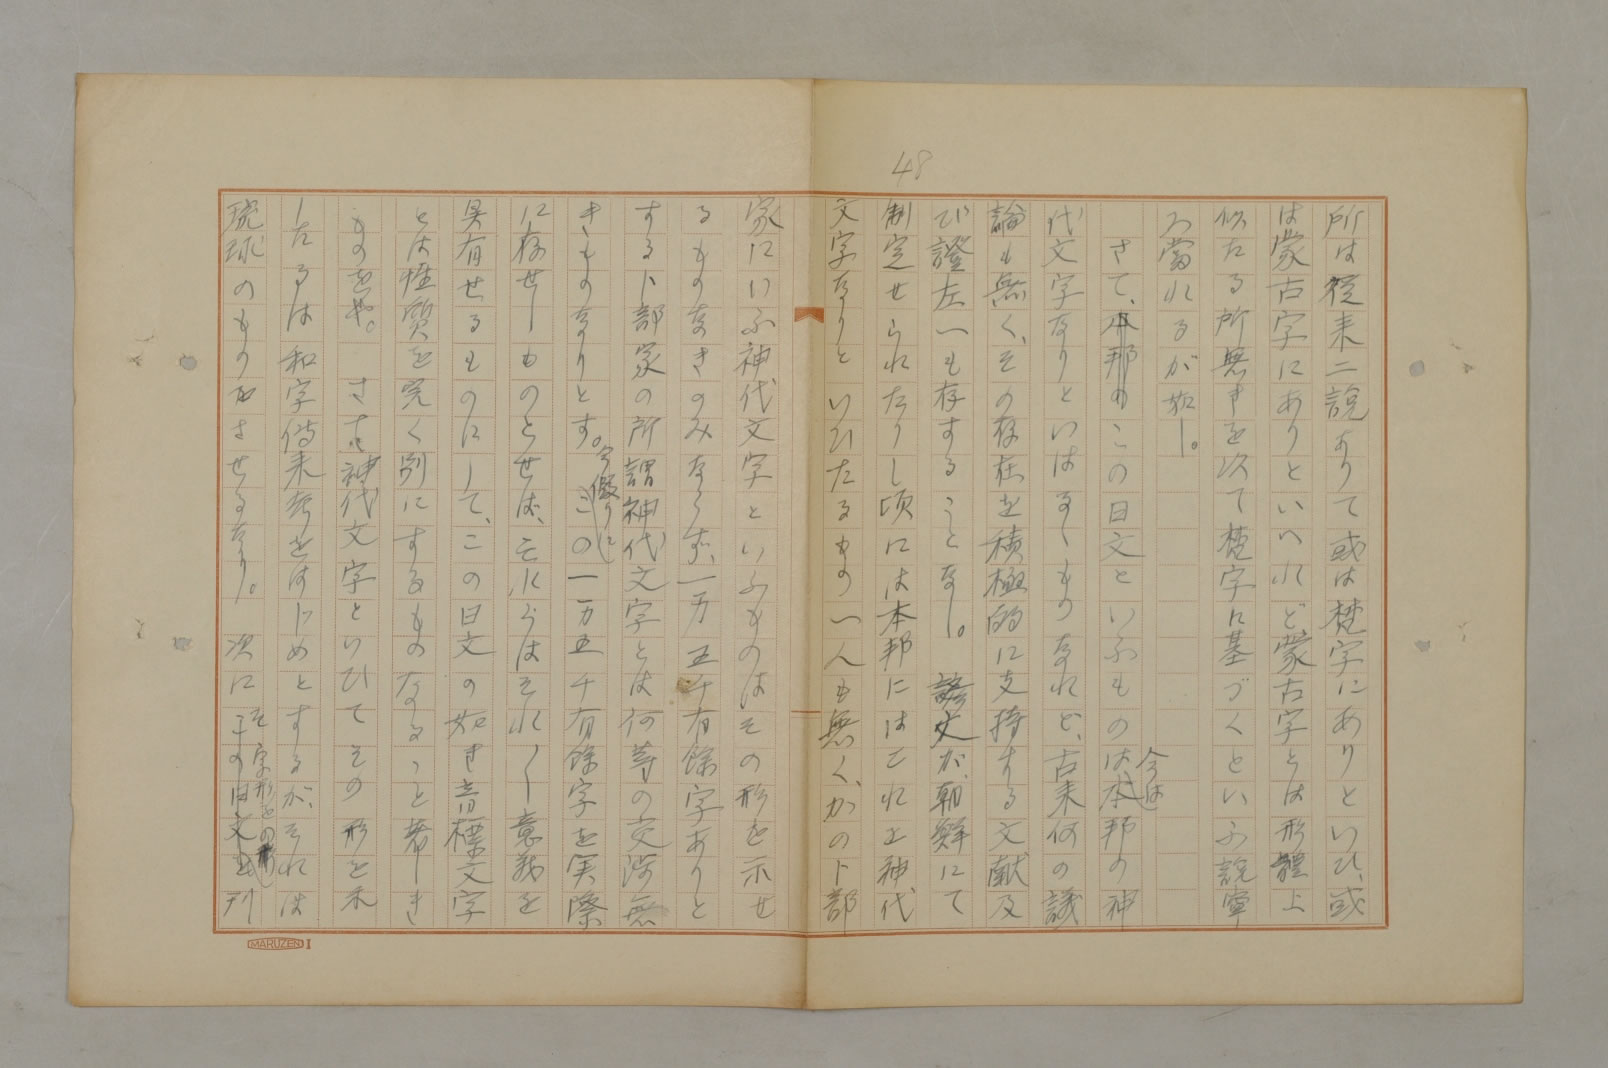 48
所は従来二説ありて或は梵字にありといひ、或
は蒙古字にありといへれど、蒙古字とは形體上
似たる所無きを以て梵字に基づくといふ説寧
ろ當れるが如し。
さて、この日文といふものは今は本邦の神
代文字なりといはるゝものなれど、古来何の議
論も無く、その存在を積極的に支持する文献及
び證左一も存することなし。諺文が、朝鮮にて
制定せられたりし頃には本邦にはこれを神代
文字なりといひたるもの一人も無く、かの卜部
家にいふ神代文字といふものはその形を示せ
るものなきのみならず、一万五千有餘字ありと
する卜部家の所謂神代文字とは何等の交渉無
きものなりとす。今假りにこの一万五千有餘字を実際
に存せしものとせば、それらはそれ〱意義を
具有せるものにして、この日文の如き音標文字
とは性質を全く別にするものなること著しき
ものをや。さて神代文字といひてその形を示
したるは和字傳来考をはじめとするが、それは
琉球のものをさせるなり。次にその字形を
MARUZEN I